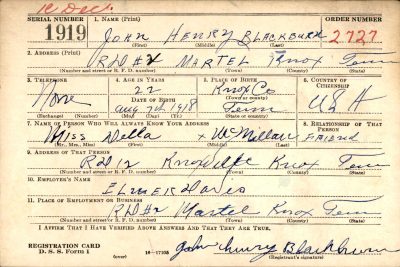 SERIAL NUMBER 1. NAME (Print) ORDER NUMBER
1919 JOHN HENRY BLACKBURN 2727
(First) (Middle) (Last)
2. ADDRESS (Print)
RD #2 MARTEL Knox Tenn
(Number and street or R. F. D. number) (Town) (County) (State)
3. TELEPHONE 4. AGE IN YEARS 5. PLACE OF BIRTH 6. COUNTRY OF CITIZENSHIP
None 22 Knox Co
DATE OF BIRTH (Town or county)
Aug 7th 1918 Tenn USA
(Exchange) (Number) (Mo.) (Day) (Yr.) (State or country)
7. NAME OF PERSON WHO WILL ALWAYS KNOW YOUR ADDRESS 8. RELATIONSHIP OF THAT PERSON
Miss Della x McMillan FRIEND
(Mr., Mrs., Miss) (First) (Middle) (Last)
9. ADDRESS OF THAT PERSON
RD 12 Knoxville Knox Tenn
(Number and street or R. F. D. number) (Town) (County) (State)
10. EMPLOYER'S NAME
ELMER Davis
11. PLACE OF EMPLOYMENT OR BUSINESS
RD #2 Martel Knox Tenn
(Number and street or R. F. D. number) (Town) (County) (State)
I AFFIRM THAT I HAVE VERIFIED ABOVE ANSWERS AND THAT THEY ARE TRUE.
REGISTRATION CARD
D. S. S. Form 1 (over) John Henry Blackburn
(Registrant's signature)